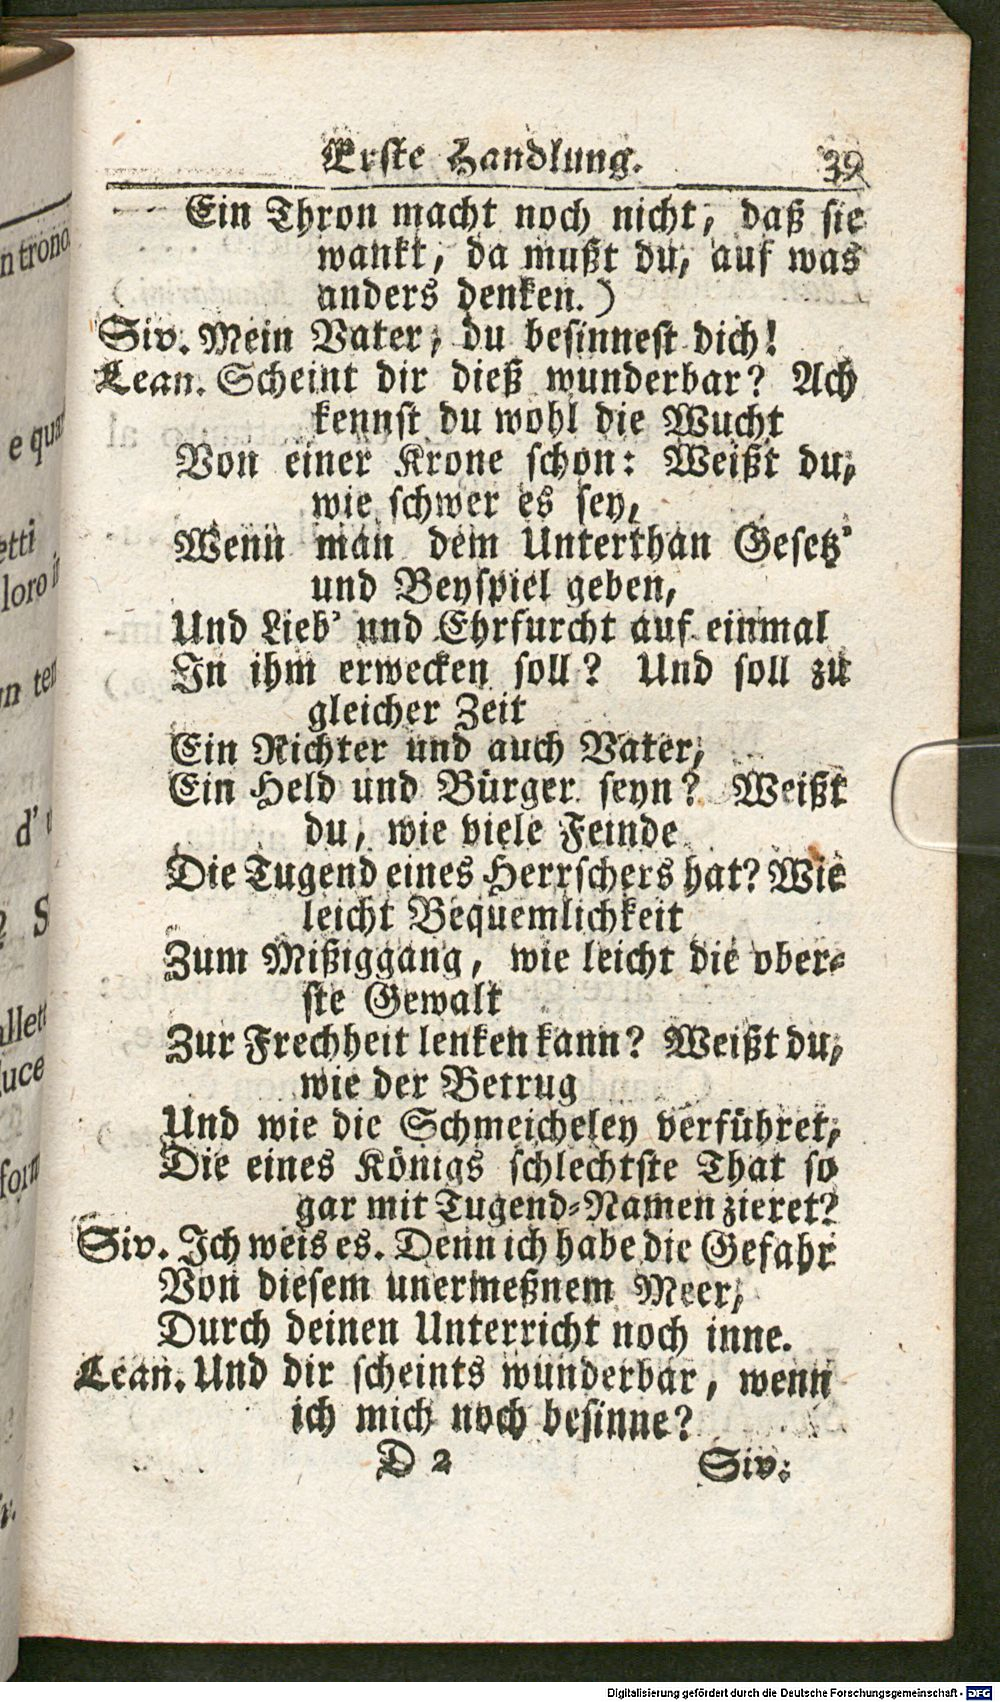 n trono.
e quan
etti
loro i
n ten
d' u
S
allett
luce
form
Erste Handlung. 39
Ein Thron macht noch nicht, daß sie
wankt, da mußt du, auf was
anders denken.)
Siv. Mein Vater, du besinnest dich!
Lean. Scheint dir dieß wunderbar? Ach
kennst du wohl die Wucht
Von einer Krone schon: Weißt du,
wie schwer es sey,
Wenn man dem Unterthan Gesetz'
und Beyspiel geben,
Und Lieb' und Ehrfurcht auf einmal
In ihm erwecken soll? Und soll zu
gleicher Zeit
Ein Richter und auch Vater,
Ein Held und Bürger seyn? Weißt
du, wie viele Feinde
Die Tugend eines Herrschers hat? Wie
leicht Bequemlichkeit
Zum Mißiggang, wie leicht die ober-
ste Gewalt
Zur Frechheit lenken kann? Weißt du,
wie der Betrug
Und wie die Schmeicheley verführet,
Die eines Königs schlechtste That so
gar mit Tugend-Namen zieret?
Siv. Ich weis es. Denn ich habe die Gefahr
Von diesem unermeßnem Meer,
Durch deinen Unterricht noch inne.
Lean. Und dir scheints wunderbar, wenn
ich mich noch besinne?
D 2 Siv:
Digitalisierung gefördert durch die Deutsche Forschungsgemeinschaft - DFG